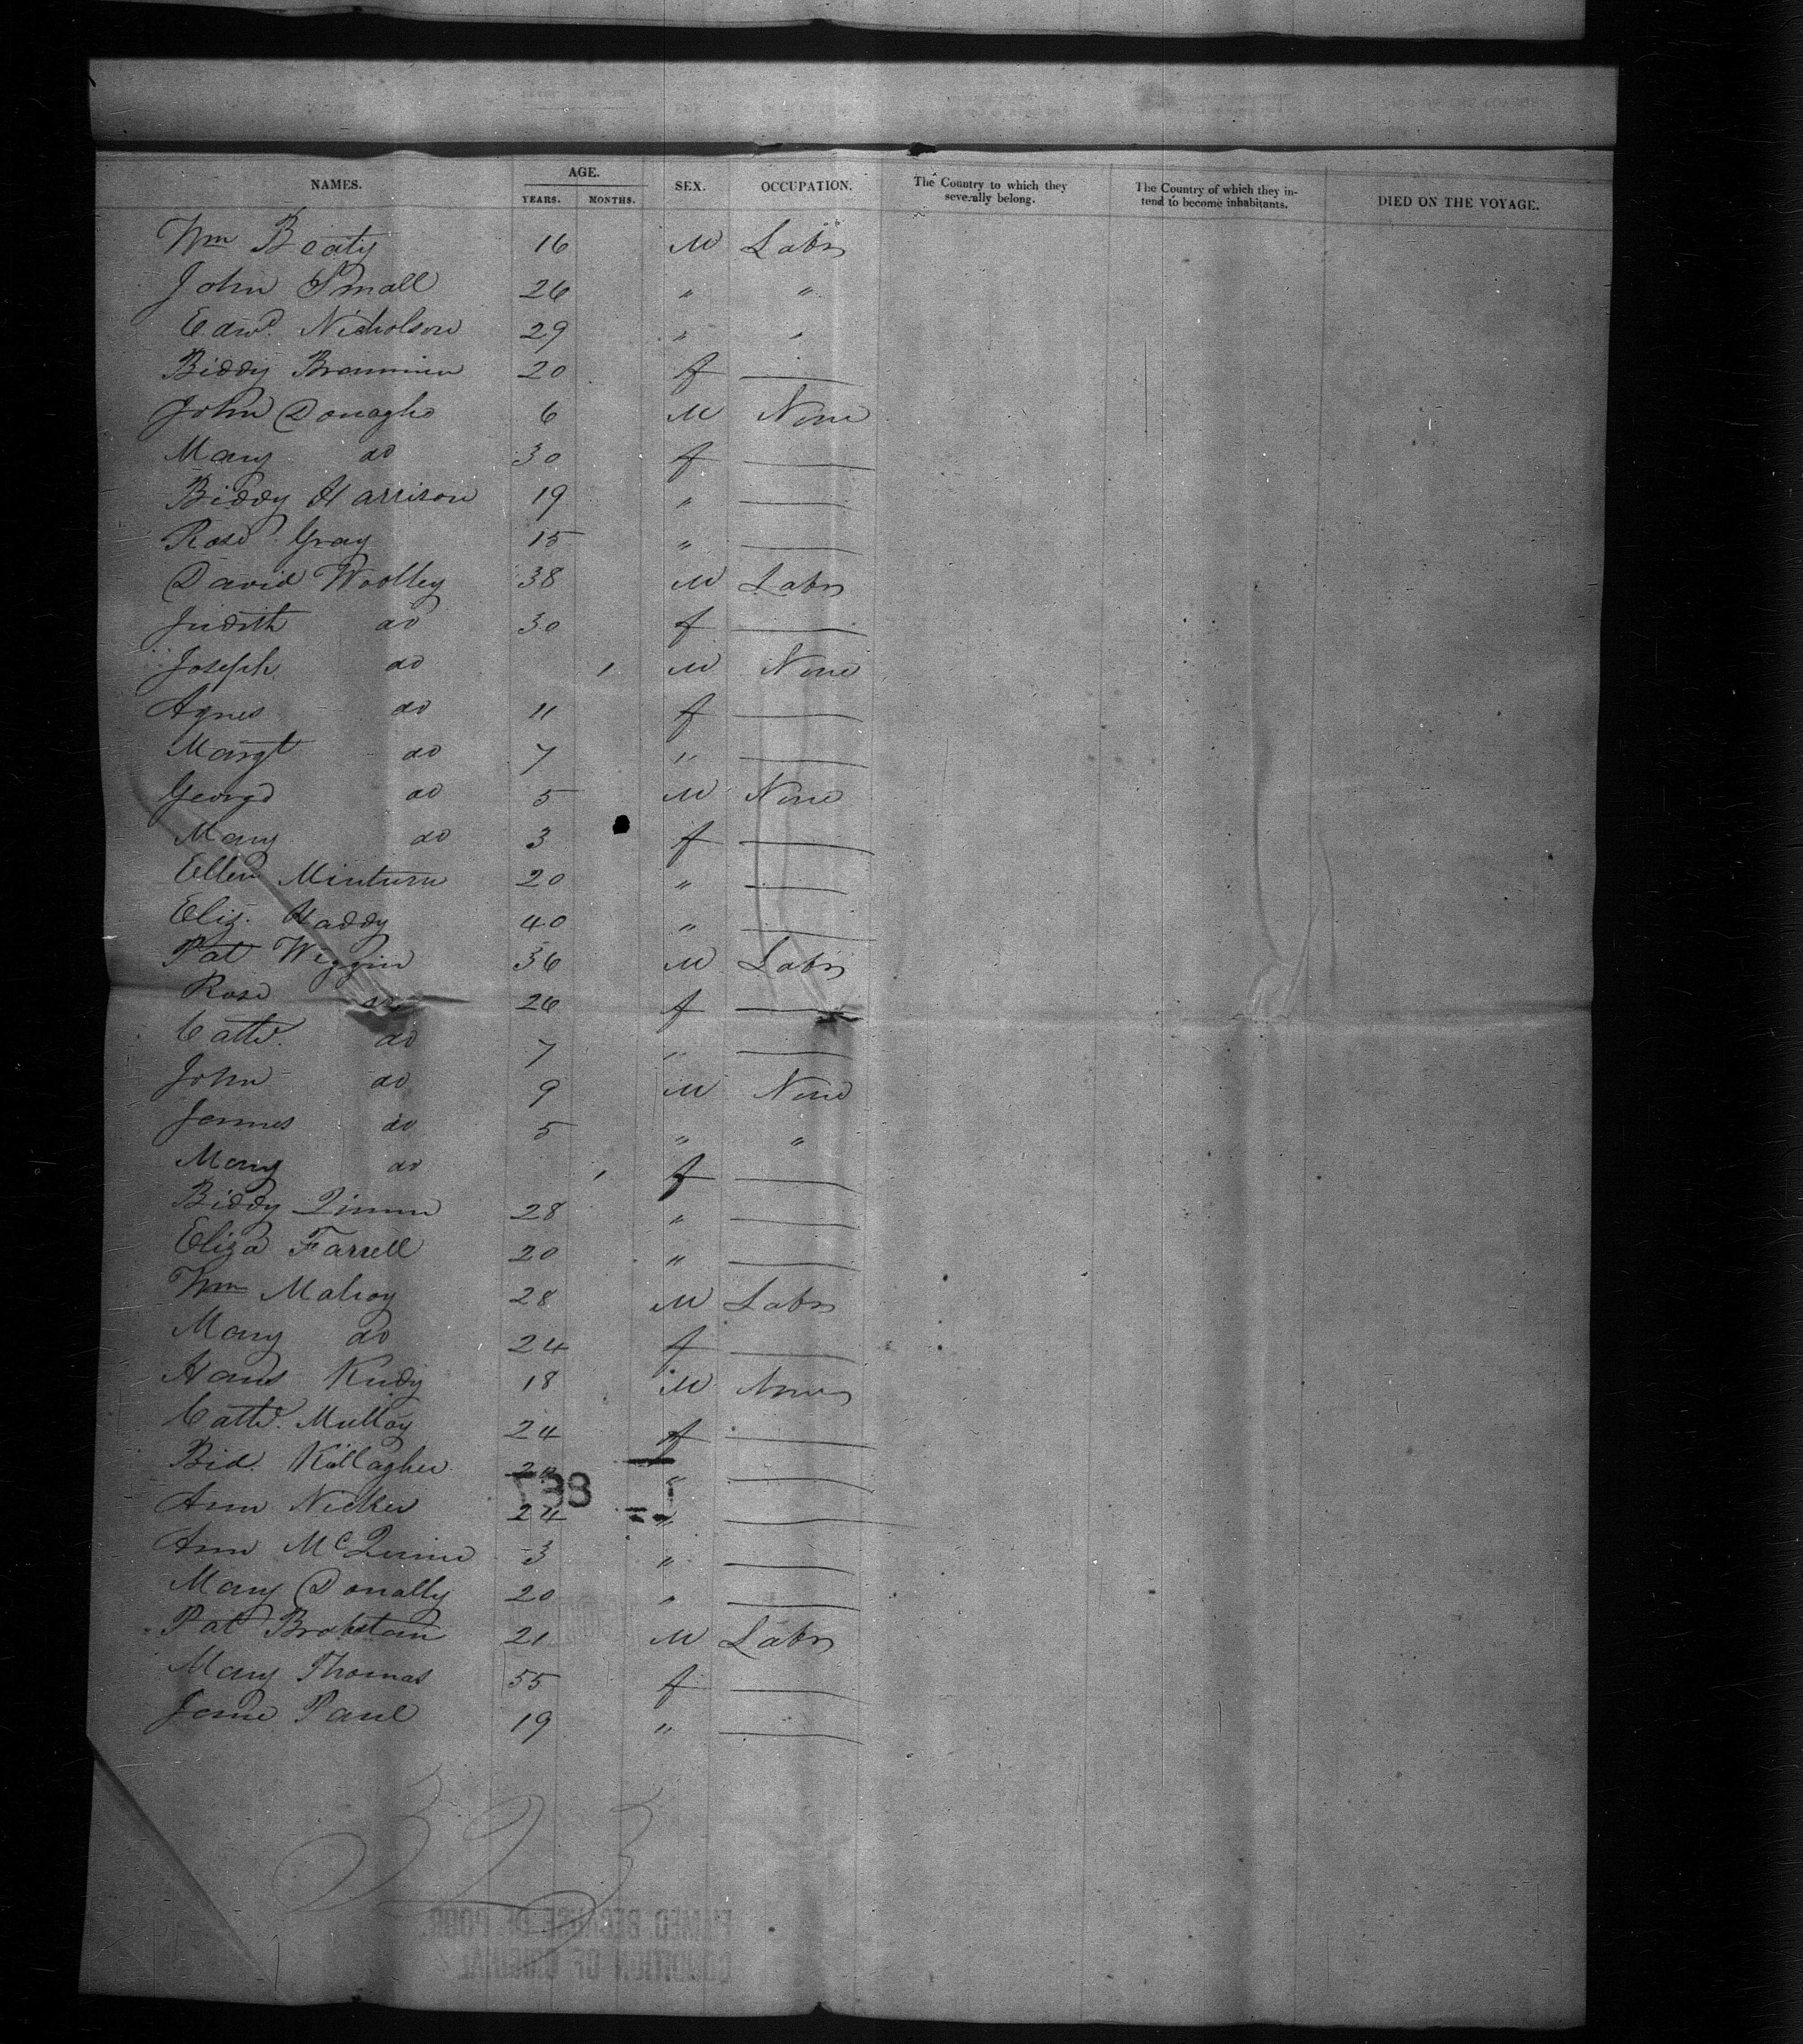 NAMES. AGE. YEARS. MONTHS. SEX. OCCUPATION. The Country to which they severally belong. The Country of which they intend to become inhabitants. DIED ON THE VOYAGE.
Wm Beaty 16 M Labr
John Small 26 " "
Edwd Nicholson 29 " "
Biddy 20 f —
John Donagho 6 M None
Mary do 30 f —
Biddy Harrison 19 " —
Rose Gray 15 " —
David Woolley 38 M Labr
Judith do 30 f —
Joseph do 1 M None
Agnes do 11 f —
Margt do 7 " —
George do 5 M None
Mary do 3 f —
Ellen Minturn 20 " —
Eliz. Haddy 40 " —
Pat Wiggin 36 M Labr
Rose do 26 f —
Cathe. do 7 " —
John do 9 M None
James do 5 " "
Mary do 1 f —
Biddy Quinn 28 " —
Eliza Farrell 20 " —
Wm Malroy 28 M Labr
Mary do 24 f —
18 M None
Cathe. Mulloy 24 f —
Bid. Killagher " —
Ann 24 " —
Ann McQuinn 3 " —
Mary Donally 20 " —
Pat 21 M Labr
Mary Thomas 55 f —
Jane Paul 19 " —
FILMED BECAUSE OF POOR
CONDITION OF ORIGINAL